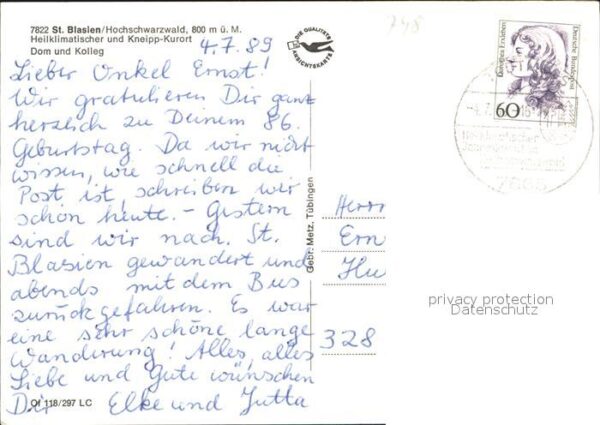 7822 St. Blasien/Hochschwarzwald, 800 m ü. M.
Heilklimatischer und Kneipp-Kurort
Dom und Kolleg
4.7.89
748
DIE QUALITÄTS
ANSICHTSKARTE
Lieber Onkel Ernst!
Wir gratulieren Dir ganz
herzlich zu Deinem 86.
Geburtstag. Da wir nicht
wissen, wie schnell die
Post ist, schreiben wir
schon heute. - Gestern
sind wir nach St.
Blasien gewandert und
abends mit dem Bus
zurückgefahren. Es war
eine sehr schöne lange
Wanderung! Alles, alles
Liebe und Gute wünschen
Dir Elke und Jutta
Of 118/297 LC
Gebr. Metz, Tübingen
Dorothea Erxleben
Deutsche Bundespost
60
Heilklimatischer
Herrn
Ern
Hu
328
privacy protection
Datenschutz